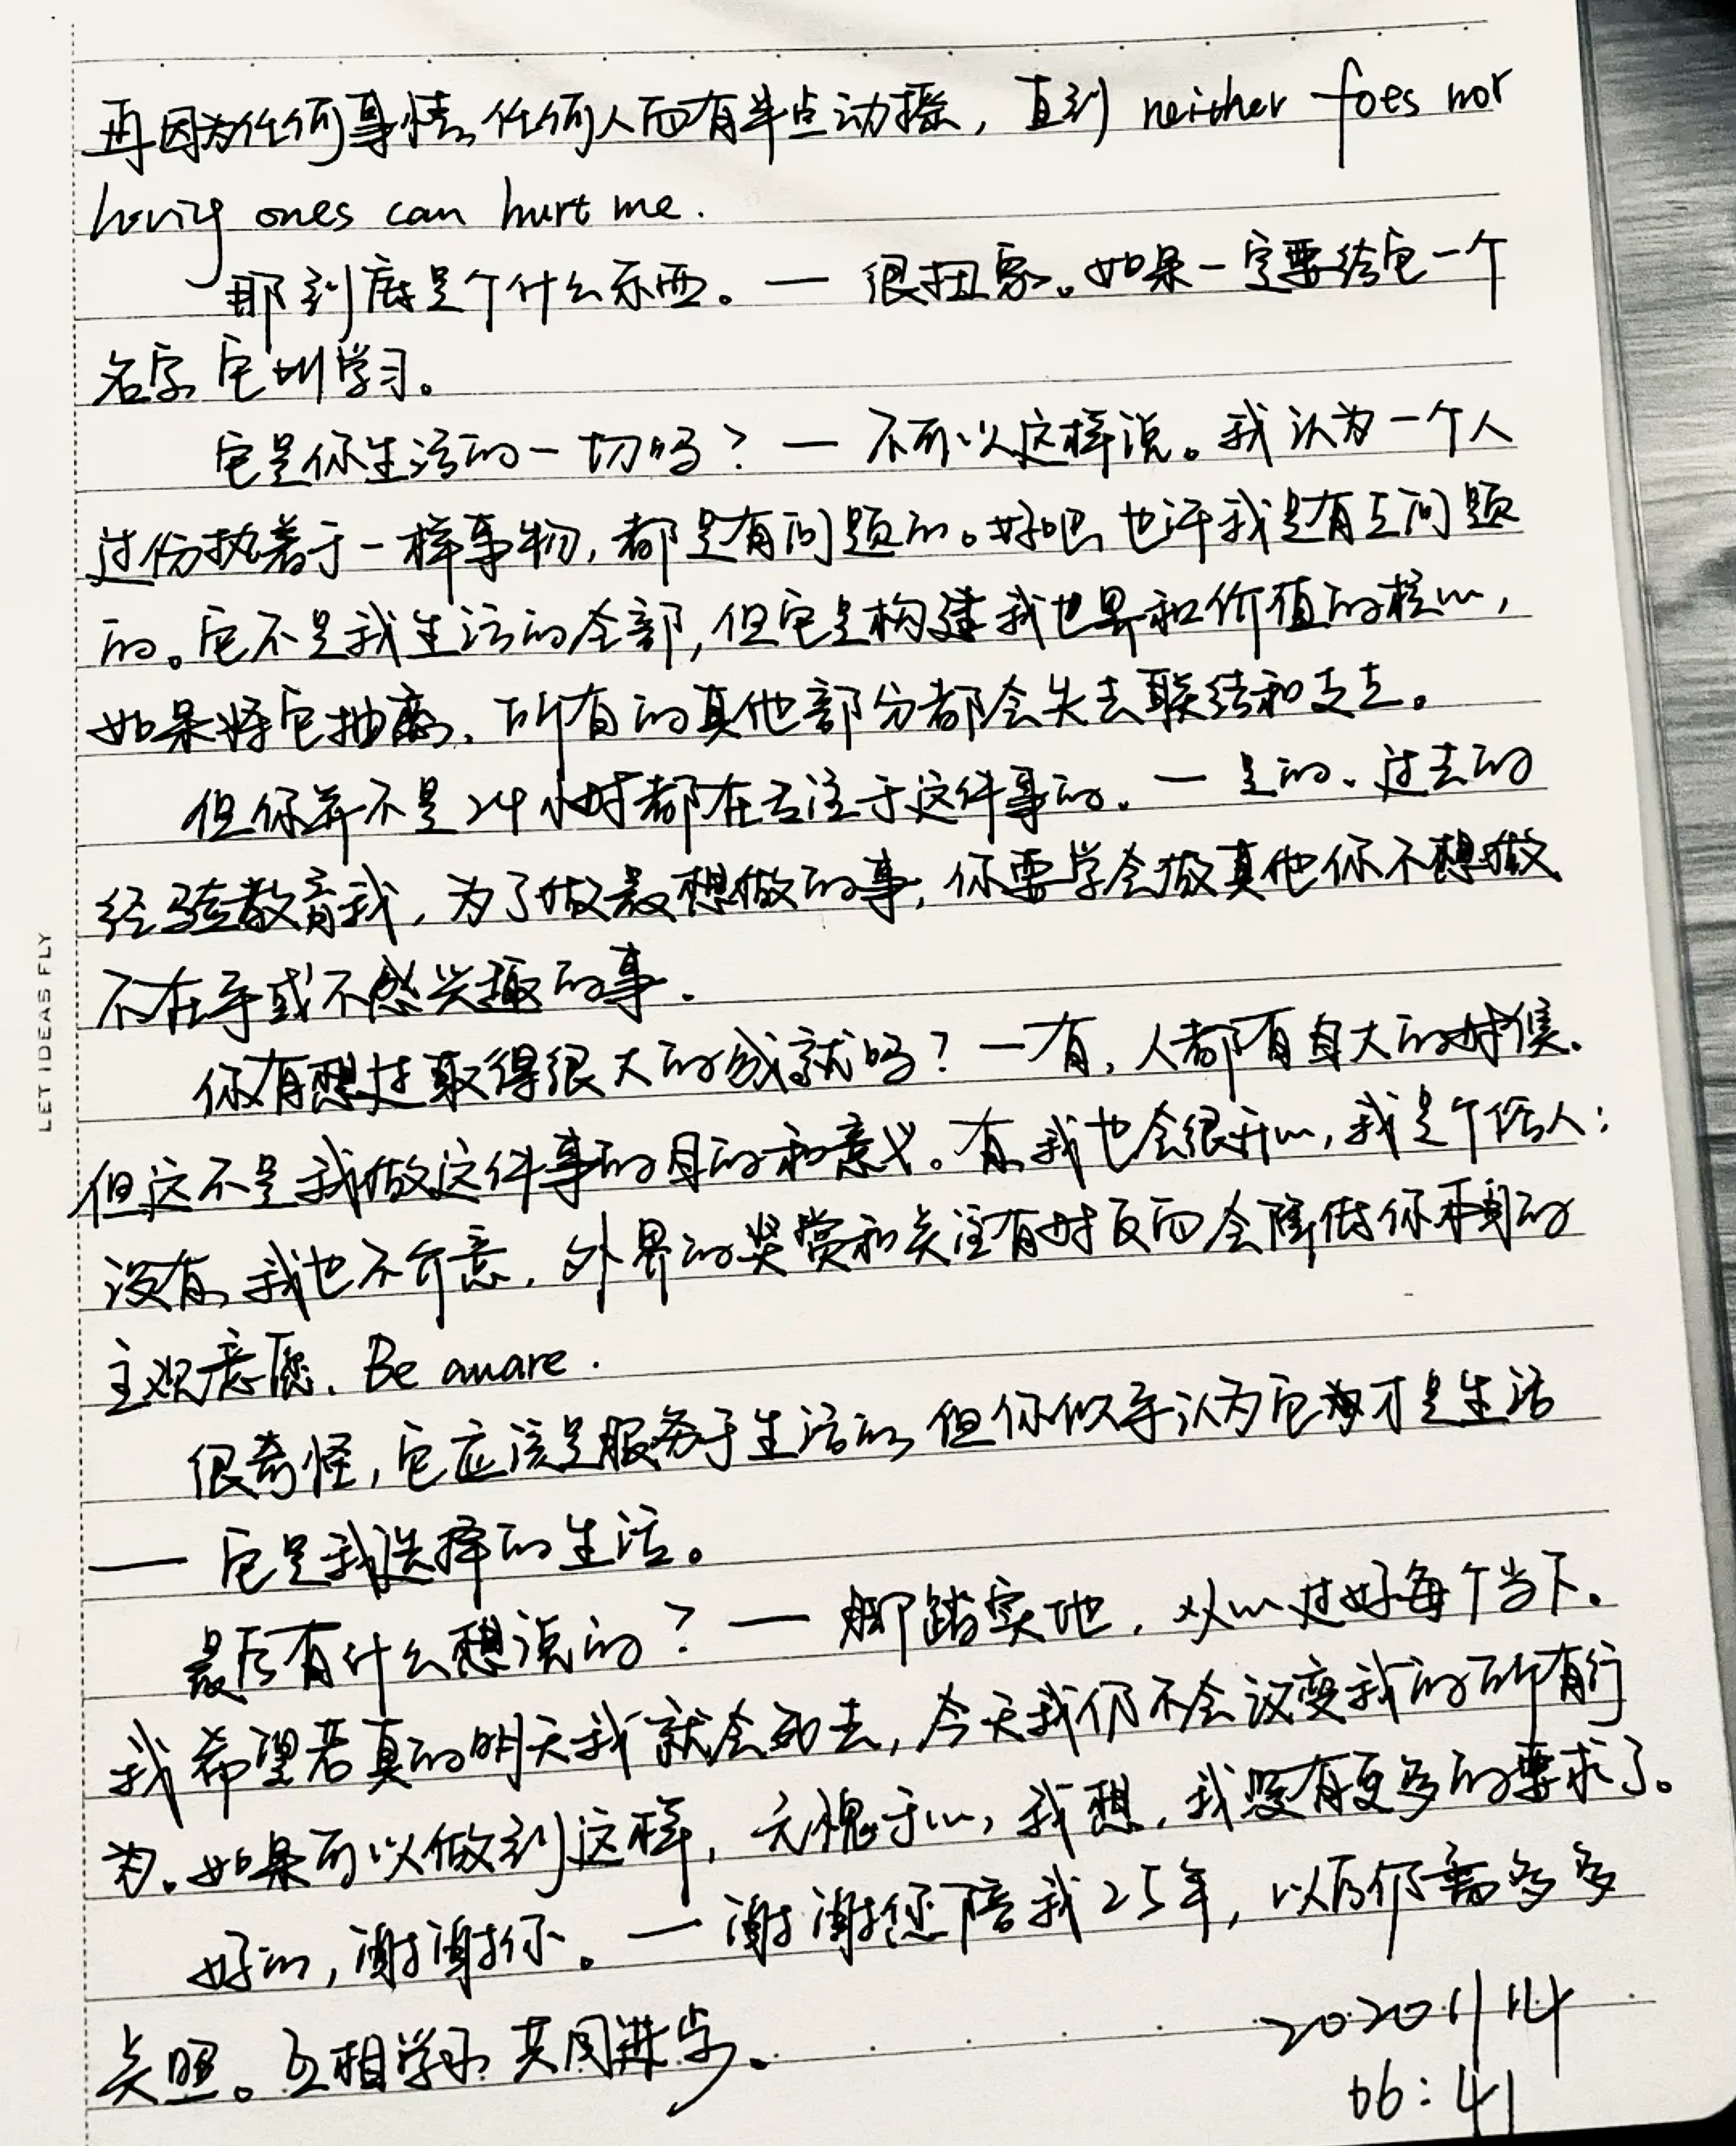 再因为任何事情、任何人而有半点动摇，直到 neither foes nor
loving ones can hurt me.
那到底是个什么东西。— 很抽象。如果一定要给它一个
名字，它叫学习。
它是你生活的一切吗？— 不可以这样说。我认为一个人
过份执着于一样事物，都是有问题的。好吧，也许我是有点问题
的。它不是我生活的全部，但它是构建我世界和价值的核心，
如果将它抽离，所有的其他部分都会失去联结和支点。
但你并不是24小时都在专注于这件事的。— 是的。过去的
经验教育我，为了做最想做的事，你要学会做其他你不想做
不在乎或不感兴趣的事.
你有想过取得很大的成就吗？—有，人都有自大的时候。
但这不是我做这件事的目的和意义。有，我也会很开心，我是个俗人；
没有，我也不介意，外界的奖赏和关注有时反而会降低你本身的
主观意愿. Be aware.
很奇怪，它应该是服务于生活的，但你似乎认为它才是生活
— 它是我选择的生活。
最后有什么想说的？— 脚踏实地，从心过好每个当下。
我希望若真的明天我就会死去，今天我仍不会改变我的所有行
为。如果可以做到这样，无愧于心，我想，我没有更多的要求了。
好的，谢谢你。— 谢谢您陪我25年，以后仍需多多
关照。互相学习 共同进步。
2020 11 14
06:41
LET IDEAS FLY